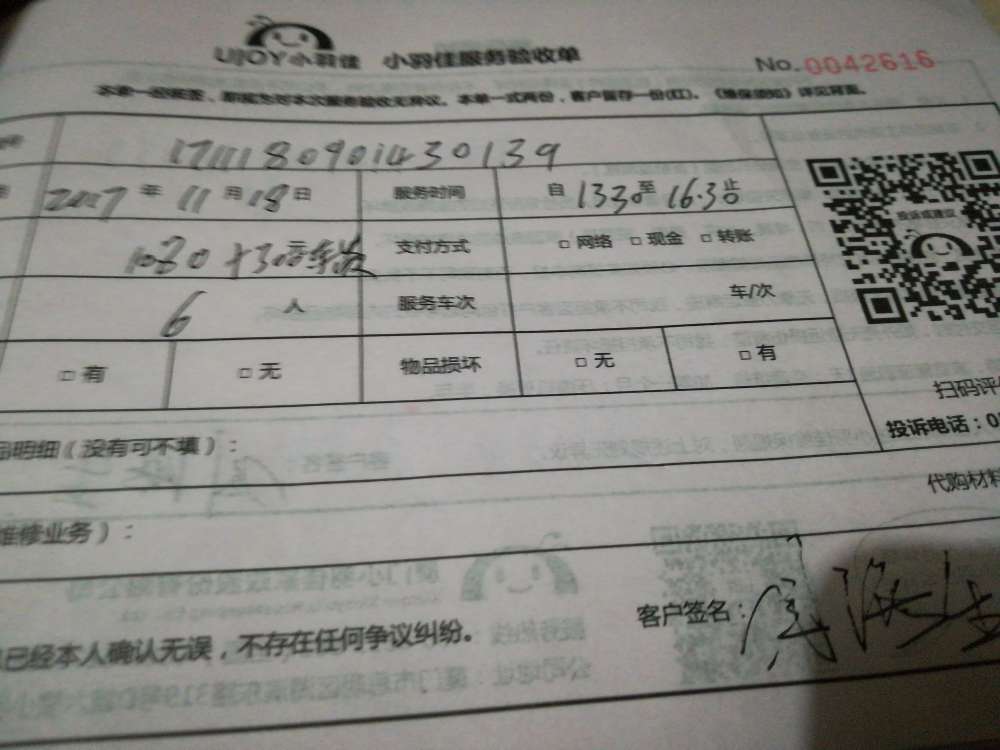 UJOY小羽佳 小羽佳服务验收单
No. 0042616
本单一经签署，即视为对本次服务验收无异议。本单一式两份，客户留存一份(红)。《维保须知》详见背面。
1711180901430139
2017 年 11 月 18 日 服务时间 自 1330 至 16:30 止
1080+30元车费 支付方式 □ 网络 □ 现金 □ 转账
6 人 服务车次 车/次
□ 有 □ 无 物品损坏 □ 无 □ 有
投诉或建议
扫码评
投诉电话：0
明细（没有可不填）：
代购材料
维修业务）：
已经本人确认无误，不存在任何争议纠纷。
客户签名：